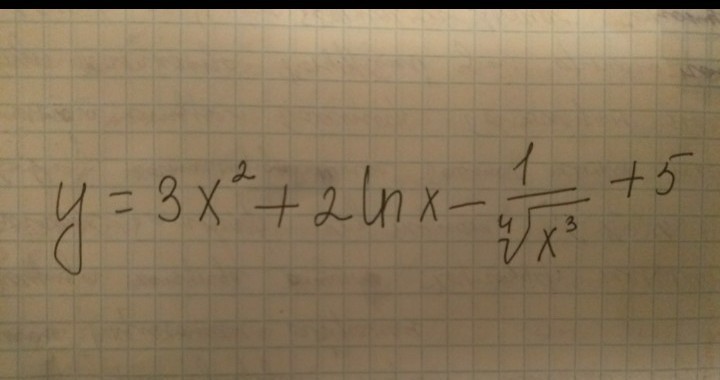 y = 3x² + 2 ln x − 1/∜(x³) + 5